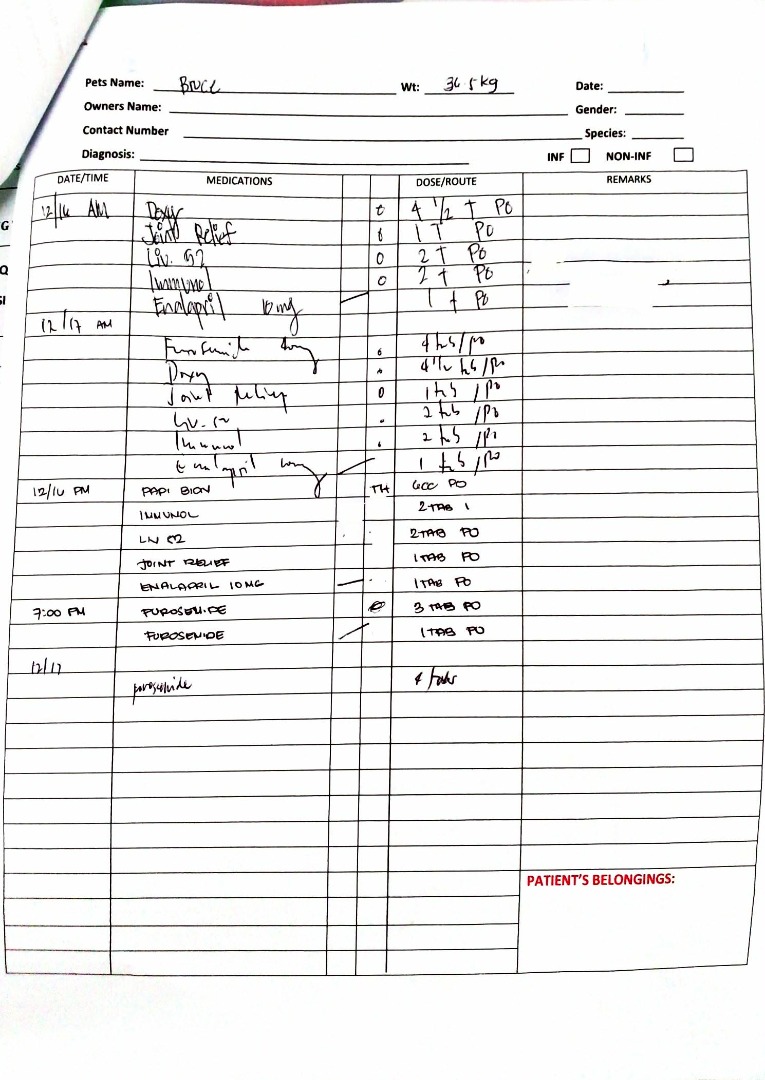 Pets Name: Bruce Wt: 36.5kg Date:
Owners Name: Gender:
Contact Number Species:
Diagnosis: INF NON-INF
DATE/TIME MEDICATIONS DOSE/ROUTE REMARKS
12/16 AM Doxy 4 1/2 T PO
Joint Relief 1 T PO
Liv. 52 2 T PO
Immunol 2 t PO
Enalapril 10mg 1 t PO
12/17 AM
Furosemide 4 /PO
Doxy 4 1/2 /PO
Joint Relief 1 /PO
Liv. 52 2 /PO
Immunol 2 /PO
Enalapril 1 /PO
12/16 PM PAPI BION TH 6CC PO
IMMUNOL 2 TAB
LIV 52 2 TAB PO
JOINT RELIEF 1 TAB PO
ENALAPRIL 10MG 1 TAB PO
7:00 PM FUROSEMIDE 3 TAB PO
FUROSEMIDE 1 TAB PO
12/17
furosemide 4 tabs
PATIENT'S BELONGINGS: